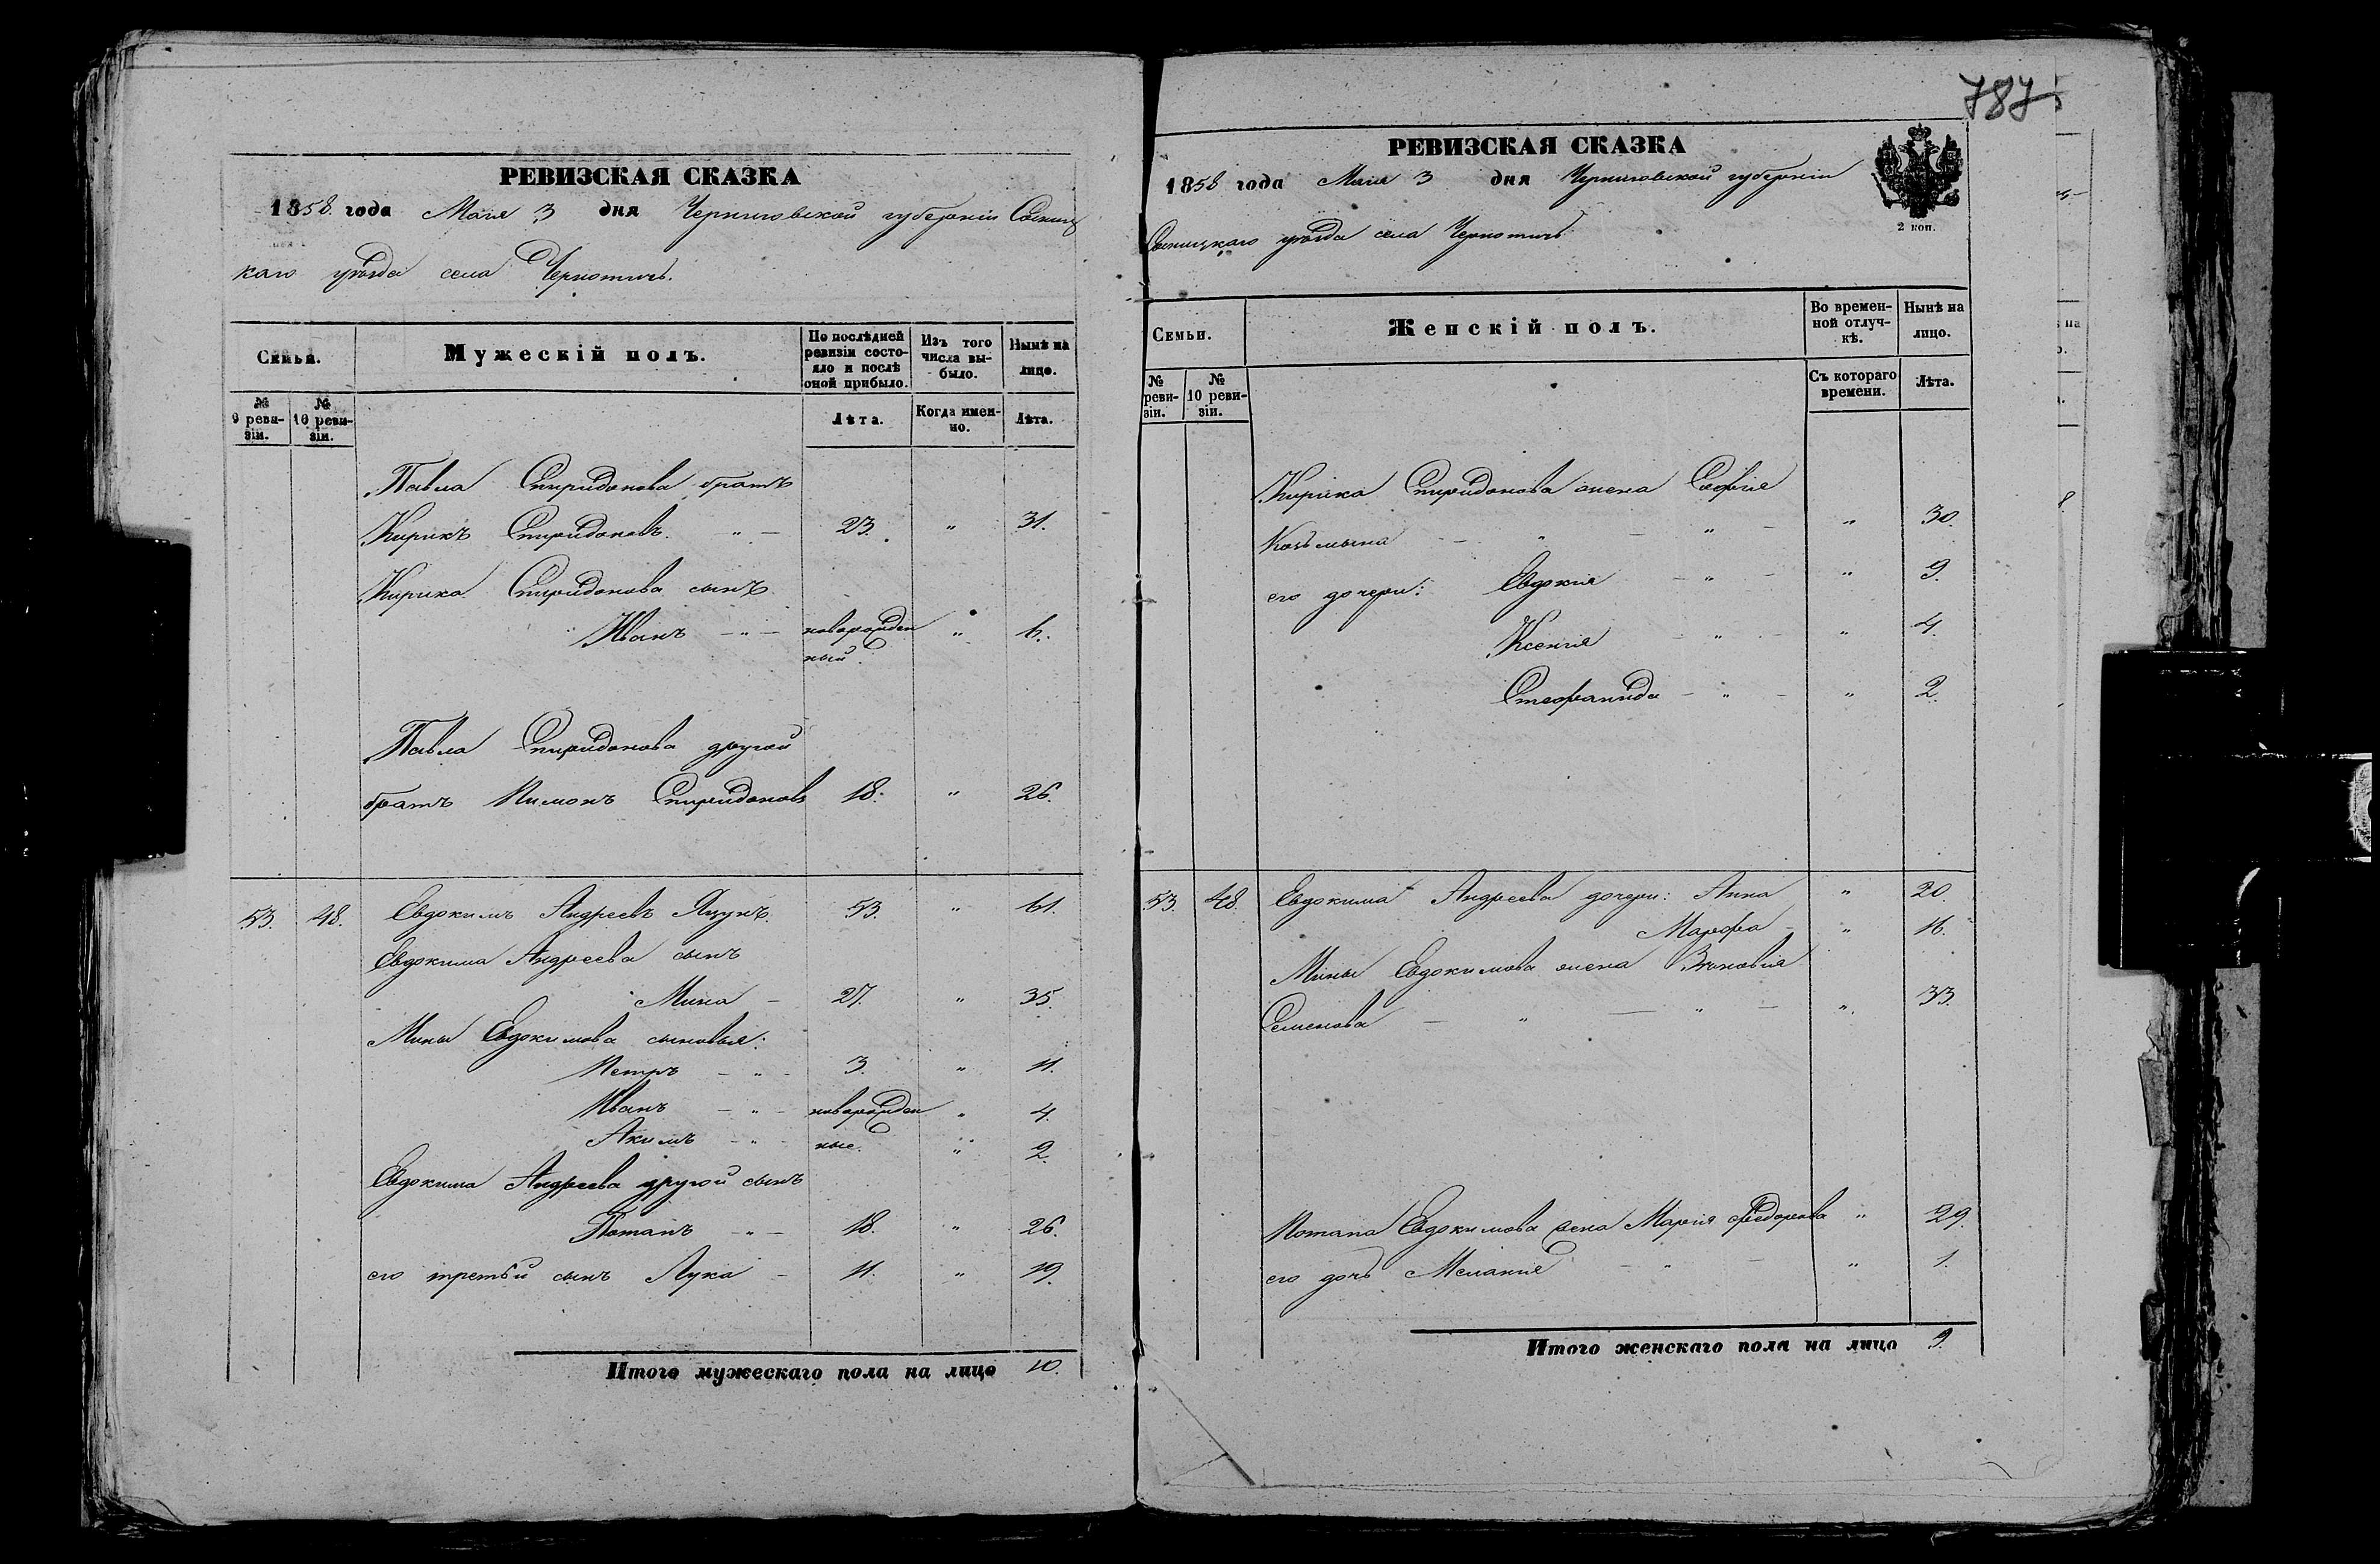 787
РЕВИЗСКАЯ СКАЗКА
1858 года Мая 3 дня Черниговской губерніи Сосниц
каго уѣзда села Чернотичъ.
Семьи.
Мужескій полъ.
По послѣдней ревизіи состояло и послѣ оной прибыло.
Изъ того числа выбыло.
Нынѣ на лицо.
№ 9 ревизіи.
№ 10 ревизіи.
Лѣта.
Когда именно.
Лѣта.
Павла Спиридонова братъ
Кирикъ Спиридоновъ. " — 23. " 31.
Кирика Спиридонова сынъ
Иванъ — " — новорожден " 6.
ный.
Павла Спиридонова другой
братъ Пимонъ Спиридоновъ 18. " 26.
53. 48. Евдокимъ Андреевъ Яцунъ. 53. " 61.
Евдокима Андреева сынъ
Мина — 27. " 35.
Мины Евдокимова сыновья:
Петръ — " — 3. " 11.
Иванъ — " — новорожден " 4.
Акимъ — " — ные. " 2.
Евдокима Андреева другой сынъ
Потапъ — " — 18. " 26.
его третьй сынъ Лука — 11. " 19.
Итого мужескаго пола на лицо 10.
РЕВИЗСКАЯ СКАЗКА
1858 года Мая 3 дня Черниговской губерніи
2 коп.
Сосницкаго уѣзда села Чернотичъ
Семьи.
Женскій полъ.
Во временной отлучкѣ.
Нынѣ на лицо.
№ ревизіи.
№ 10 ревизіи.
Съ котораго времени.
Лѣта.
Кирика Спиридонова жена Софія
Козьмына — " — " — " 30.
его дочери: Евдокія — " — " 9.
Ксенія — " — " 4.
Стефанида — " — " 2.
53. 48. Евдокима Андреева дочери: Анна " 20.
Марфа — " 16.
Мины Евдокимова жена Зиновія
Семенова — " — " — " 33.
Потапа Евдокимова жена Марія Федорова " 29.
его дочь Меланія — " — " 1.
Итого женскаго пола на лицо 9.